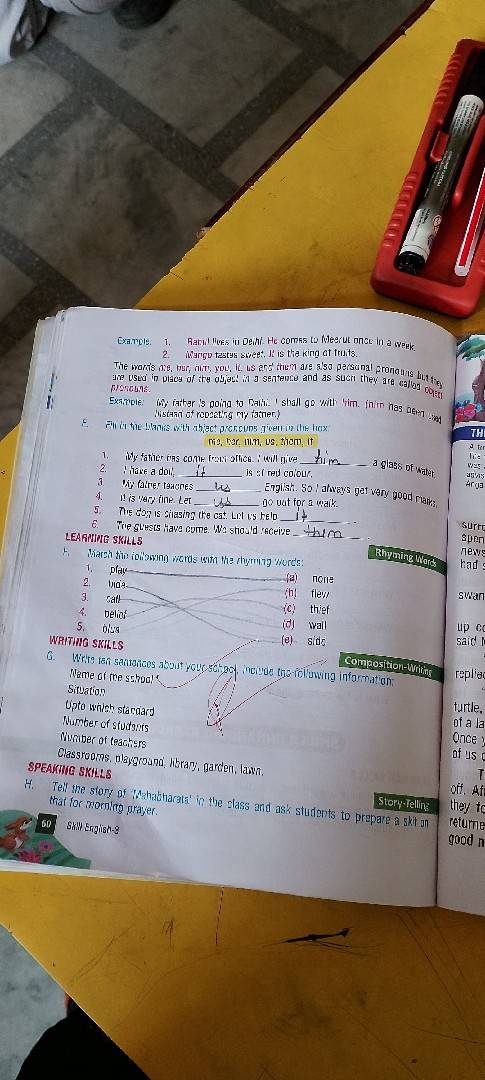 Example: 1. Rahul lives in Delhi. He comes to Meerut once in a week.
2. Mango tastes sweet. It is the king of fruits.
The words me, her, him, you, it, us and them are also personal pronouns but they
are used in place of the object in a sentence and as such they are called object
pronouns.
Example: My father is going to Delhi. I shall go with him. (him has been used
instead of repeating my father.)
E. Fill in the blanks with object pronouns given in the box:
me, her, him, us, them, it
1. My father has come from office. I will give him a glass of water.
2. I have a doll, it is of red colour.
3. My father teaches us English. So I always get very good marks.
4. It is very fine. Let us go out for a walk.
5. The dog is chasing the cat. Let us help it
6. The guests have come. We should receive them
LEARNING SKILLS
Rhyming Words
F. Match the following words with the rhyming words:
1. play (a) none
2. (b) flew
3. call (c) thief
4. belief (d) wall
5. blue (e) side
WRITING SKILLS
Composition-Writing
G. Write ten sentences about your school, include the following information:
Name of the school
Situation
Upto which standard
Number of students
Number of teachers
Classrooms, playground, library, garden, lawn.
SPEAKING SKILLS
Story-Telling
H. Tell the story of 'Mahabharata' in the class and ask students to prepare a skit on
that for morning prayer.
60 Skill English-3
TH
was
Once
of us
off. Af
they fo
returne
good n